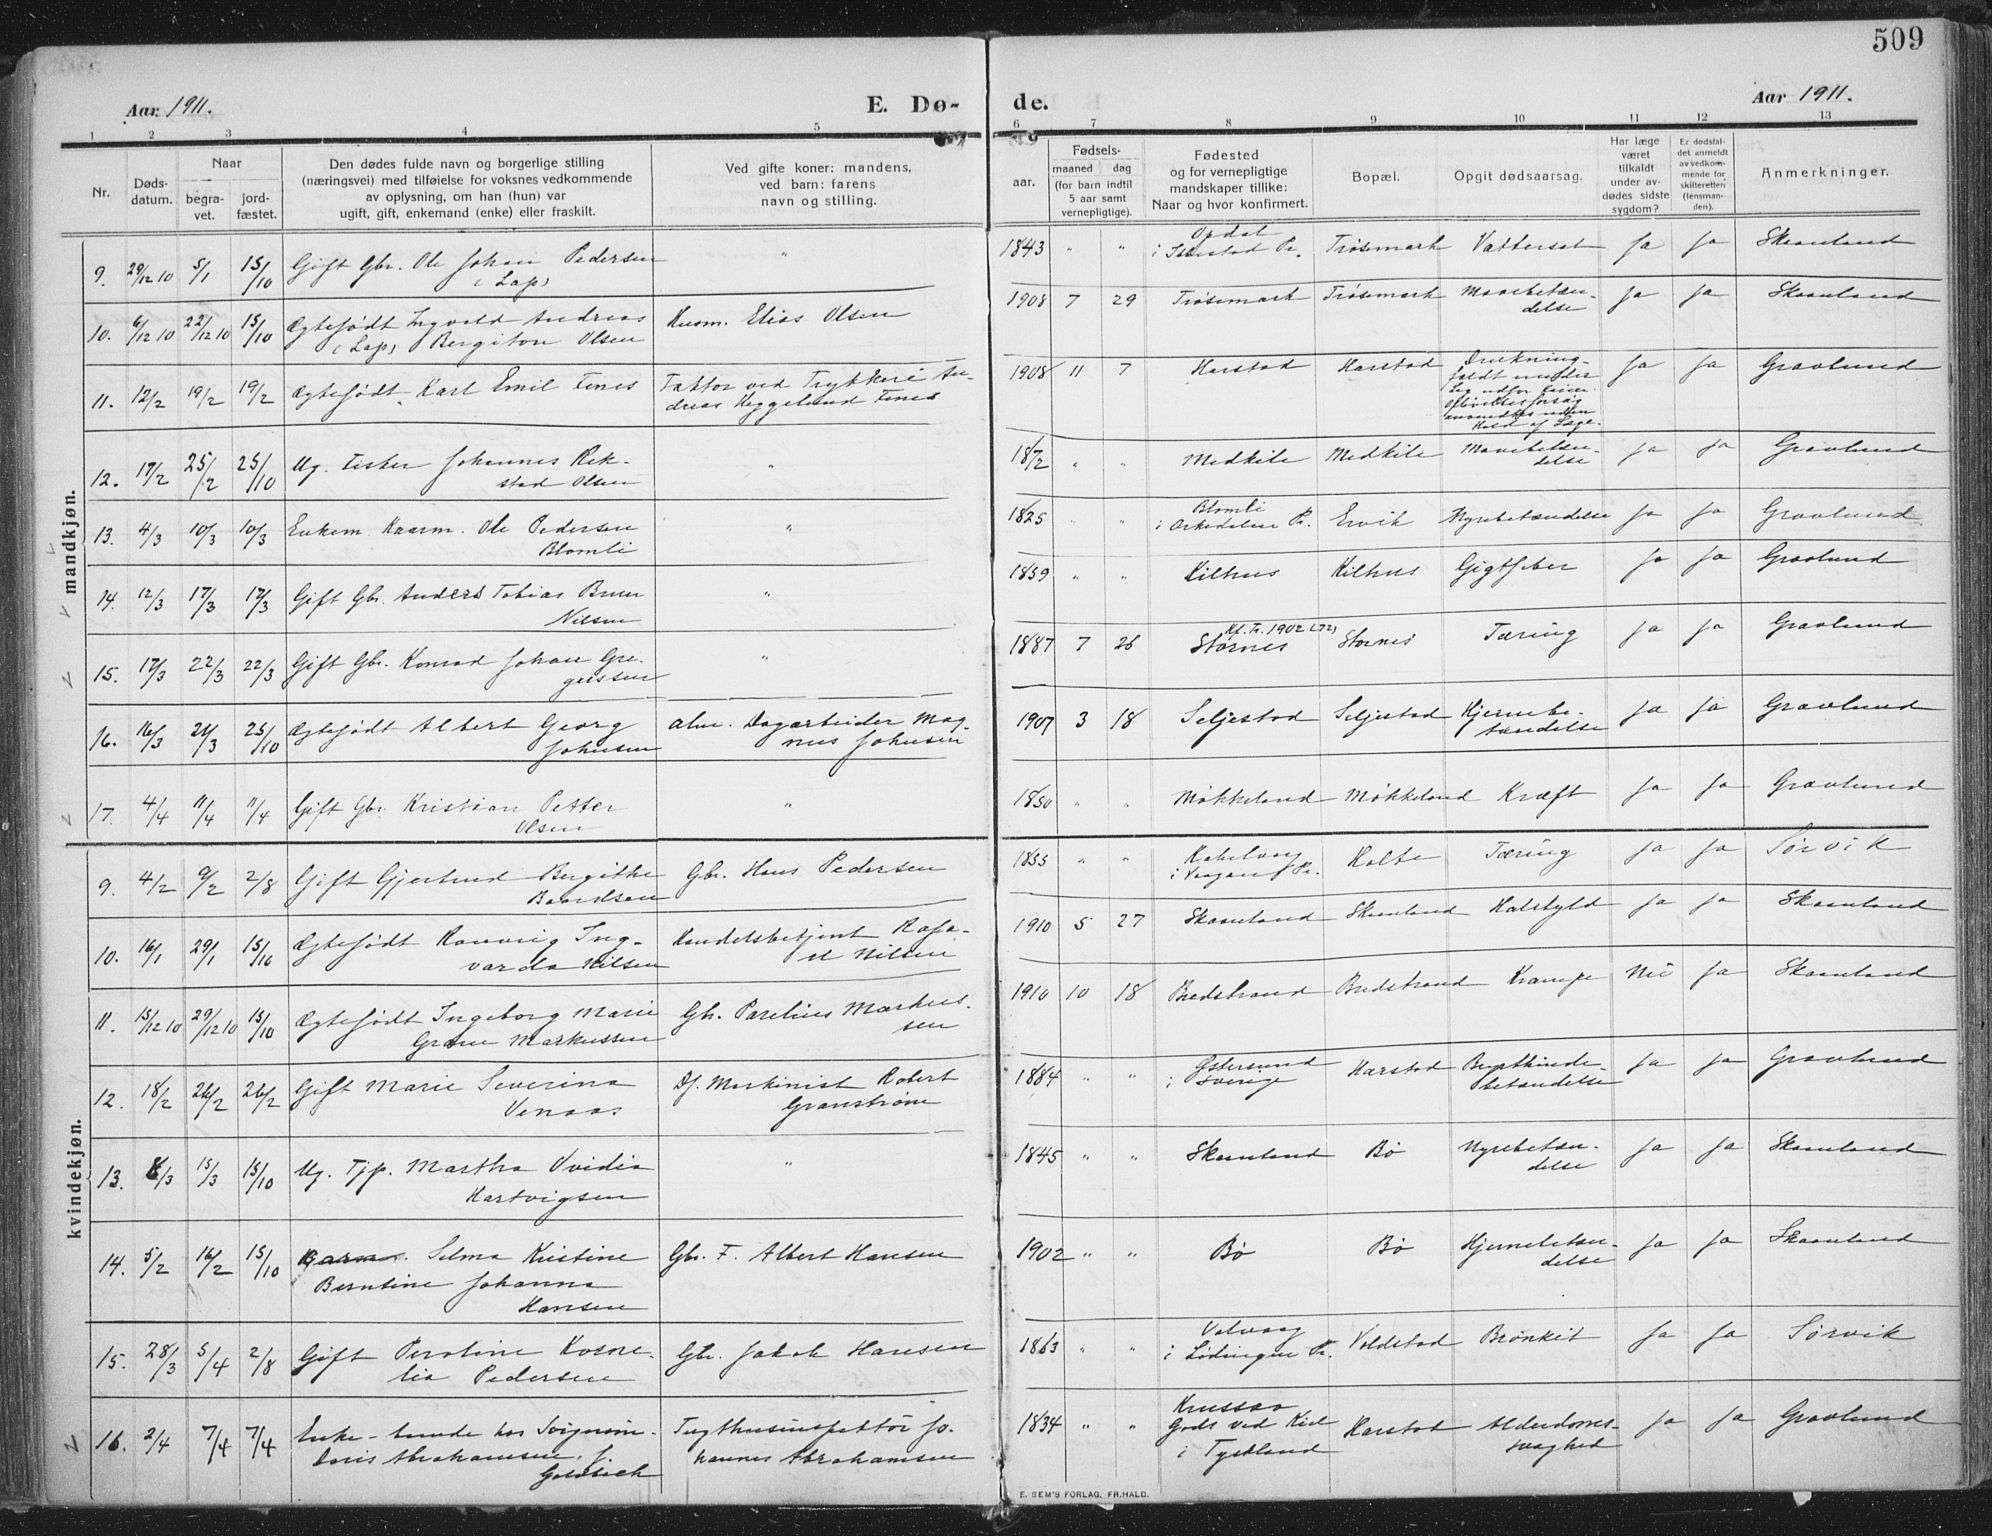 509
Aar 1911.
E. Dø-
de.
Aar 1911.
1 2 3 4 5 6 7 8 9 10 11 12 13
Nr.
Døds-
datum.
Naar
begra-
vet.
jord-
fæstet.
Den dødes fulde navn og borgerlige stilling
(næringsvei) med tilføielse for voksnes vedkommende
av oplysning, om han (hun) var
ugift, gift, enkemand (enke) eller fraskilt.
Ved gifte koner: mandens,
ved barn: farens
navn og stilling.
aar.
Fødsels-
maaned dag
(for barn indtil
5 aar samt
vernepligtige).
Fødested
og for vernepligtige
mandskaper tillike:
Naar og hvor konfirmert.
Bopæl.
Opgit dødsaarsag.
Har læge
været
tilkaldt
under av-
dødes sidste
sygdom?
Er dødsfal-
det anmeldt
av vedkom-
mende for
skifteretten
(lensman-
den).
Anmerkninger.
mandkjøn.
9. 29/12 10 5/1 15/10 Gift Gbr. Ole Johan Pedersen " 1843 " " Trøsemark Vattersot Ja Ja Skaanland
(Lap)
10. 6/12 10 22/12 10 15/10 Ægtefødt Ingvald Andreas Husm. Elias Olsen 1908 7 29 Trøsemark Trøsemark Mavebetæn- Ja Ja Skaanland
(Lap) Bergiton Olsen delse
11. 12/2 19/2 19/2 Ægtefødt Karl Emil Fines Faktor ved Trykkeri An- 1908 11 7 Harstad Harstad Drukning- Ja Ja Gravlund
dreas Heggelund Fines
12. 17/2 25/2 25/10 Ug. Fisker Johannes Rik- " 1872 " " Medkile Medkile Mavebetæn- Ja Ja Gravlund
stad Olsen delse
13. 4/3 10/3 10/3 Enkem. Kaarm. Ole Pedersen " 1825 " " Blomli Ervik Nyrebetændelse Ja Ja Gravlund
Blomli i Orkedalen Pr.
14. 12/3 17/3 17/3 Gift Gbr. Anders Tobias Bruun " 1859 " " Kilhus Kilhus Gigtfeber Ja Ja Gravlund
Nilsen
15. 17/3 22/3 22/3 Gift Gbr. Konrad Johan Gre- " 1887 7 26 Stornes Stornes Tæring Ja Ja Gravlund
gersen
16. 16/3 21/3 25/10 Ægtefødt Albert Georg Dagarbeider Mag- 1907 3 18 Seljestad Seljestad Hjernebe- Ja Ja Gravlund
Johnsen nus Johnsen tændelse
17. 4/4 11/4 11/4 Gift Gbr. Kristian Petter " 1850 " " Møkkeland Møkkeland Kræft Ja Ja Gravlund
Olsen
kvindekjøn.
9. 4/2 9/2 2/8 Gift Gjertrud Bergithe Gbr. Hans Pedersen 1855 " " Kabelvaag Holte Tæring Ja Ja Sørvik
Baardsen i Vaagan Pr.
10. 16/1 29/1 15/10 Ægtefødt Ranveig Ing- Handelsbetjent Rafa- 1910 5 27 Skaanland Skaanland Halsbyld Ja Ja Skaanland
varda Nilsen el Nilsen
11. 15/12 10 29/12 10 15/10 Ægtefødt Ingeborg Marie Gbr. Parelius Markus- 1910 10 18 Bredstrand Bredstrand Krampe Nei Ja Skaanland
Markussen sen
12. 18/2 26/2 26/2 Gift Marie Severina Df. Maskinist Robert 1884 " " Østersund Harstad Brysthinde- Ja Ja Gravlund
Venaas Granstrøm i Sverige betændelse
13. 8/3 15/3 15/10 Ug. Tjp. Martha Ovidia " 1845 " " Skaanland Bø Nyrebetæn- Ja Ja Skaanland
Hartvigsen delse
14. 5/2 16/2 15/10 Selma Kristine Gbr. F. Albert Hansen 1902 " " Bø Bø Hjernebetæn- Ja Ja Skaanland
Berntine Johanna delse
Hansen
15. 28/3 5/4 2/8 Gift Perotine Korne- Gbr. Jakob Hansen 1863 " " Valvaag Voldstad Brønkit Ja Ja Sørvik
lia Pedersen i Lødingen Pr.
16. 2/4 7/4 7/4 Enke- Tugthusinspektør Jo- 1834 " " Harstad Alderdoms- Ja Ja Gravlund
Doris Abrahamsen, f. hannes Abrahamsen Gods ved Kiel svaghed
i Tyskland
E. SEM'S FORLAG, FR.HALD.